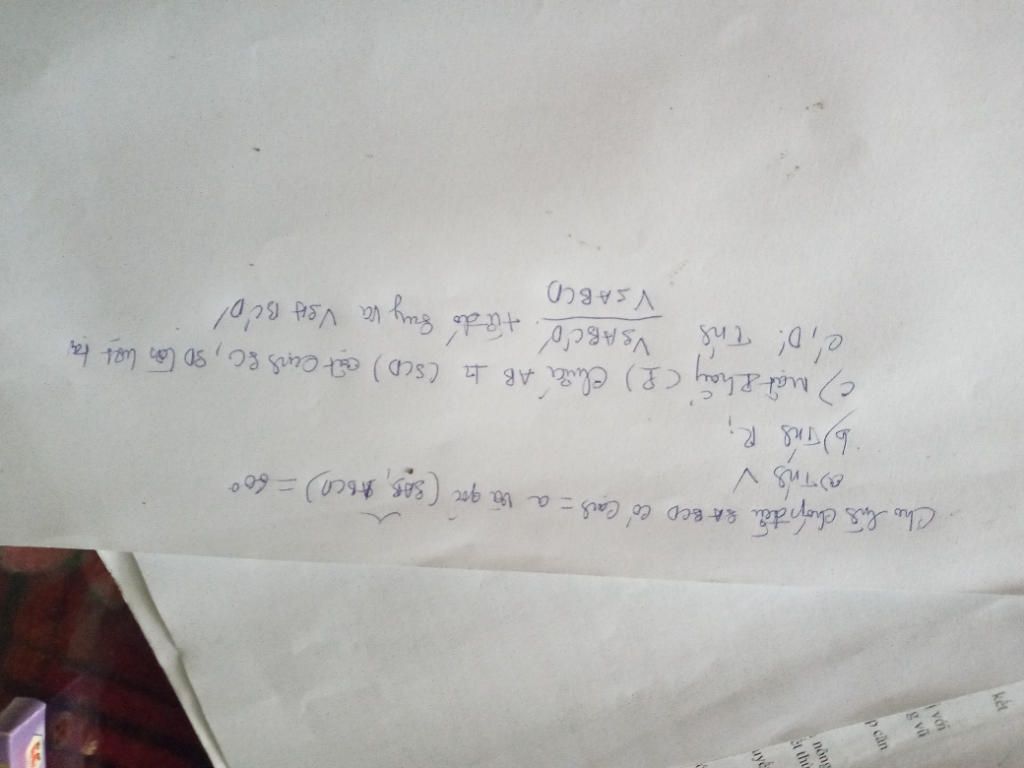 Cho hình chóp đều SABCD có cạnh = a và góc (SAB, ABCD) = 60°
a) Tính V
b) Tính R
c) Mặt phẳng (P) chứa AB ⊥ (SCD) cắt cạnh SC, SD lần lượt tại
C', D'. Tính VSABC'D' / VSABCD. từ đó suy ra VSABC'D'
kết
với
g vũ
p căn
nông